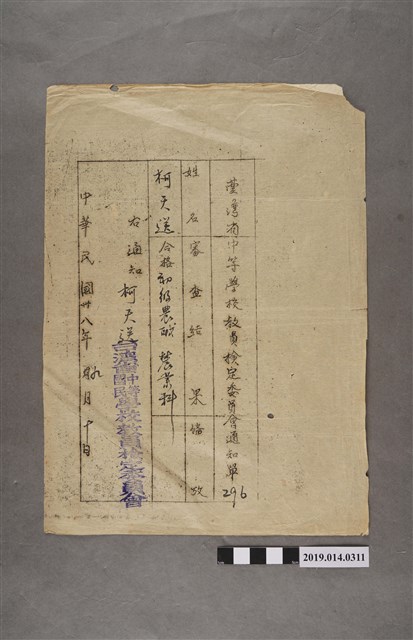 臺灣省中等學校教員檢定委員會通知單296
姓名 審查結果 備攷
柯天送 合格初級農職 農業科
右通知柯天送
台灣省中等學校教員檢定委員會
中華民國卅八年 九月十日
2019.014.0311